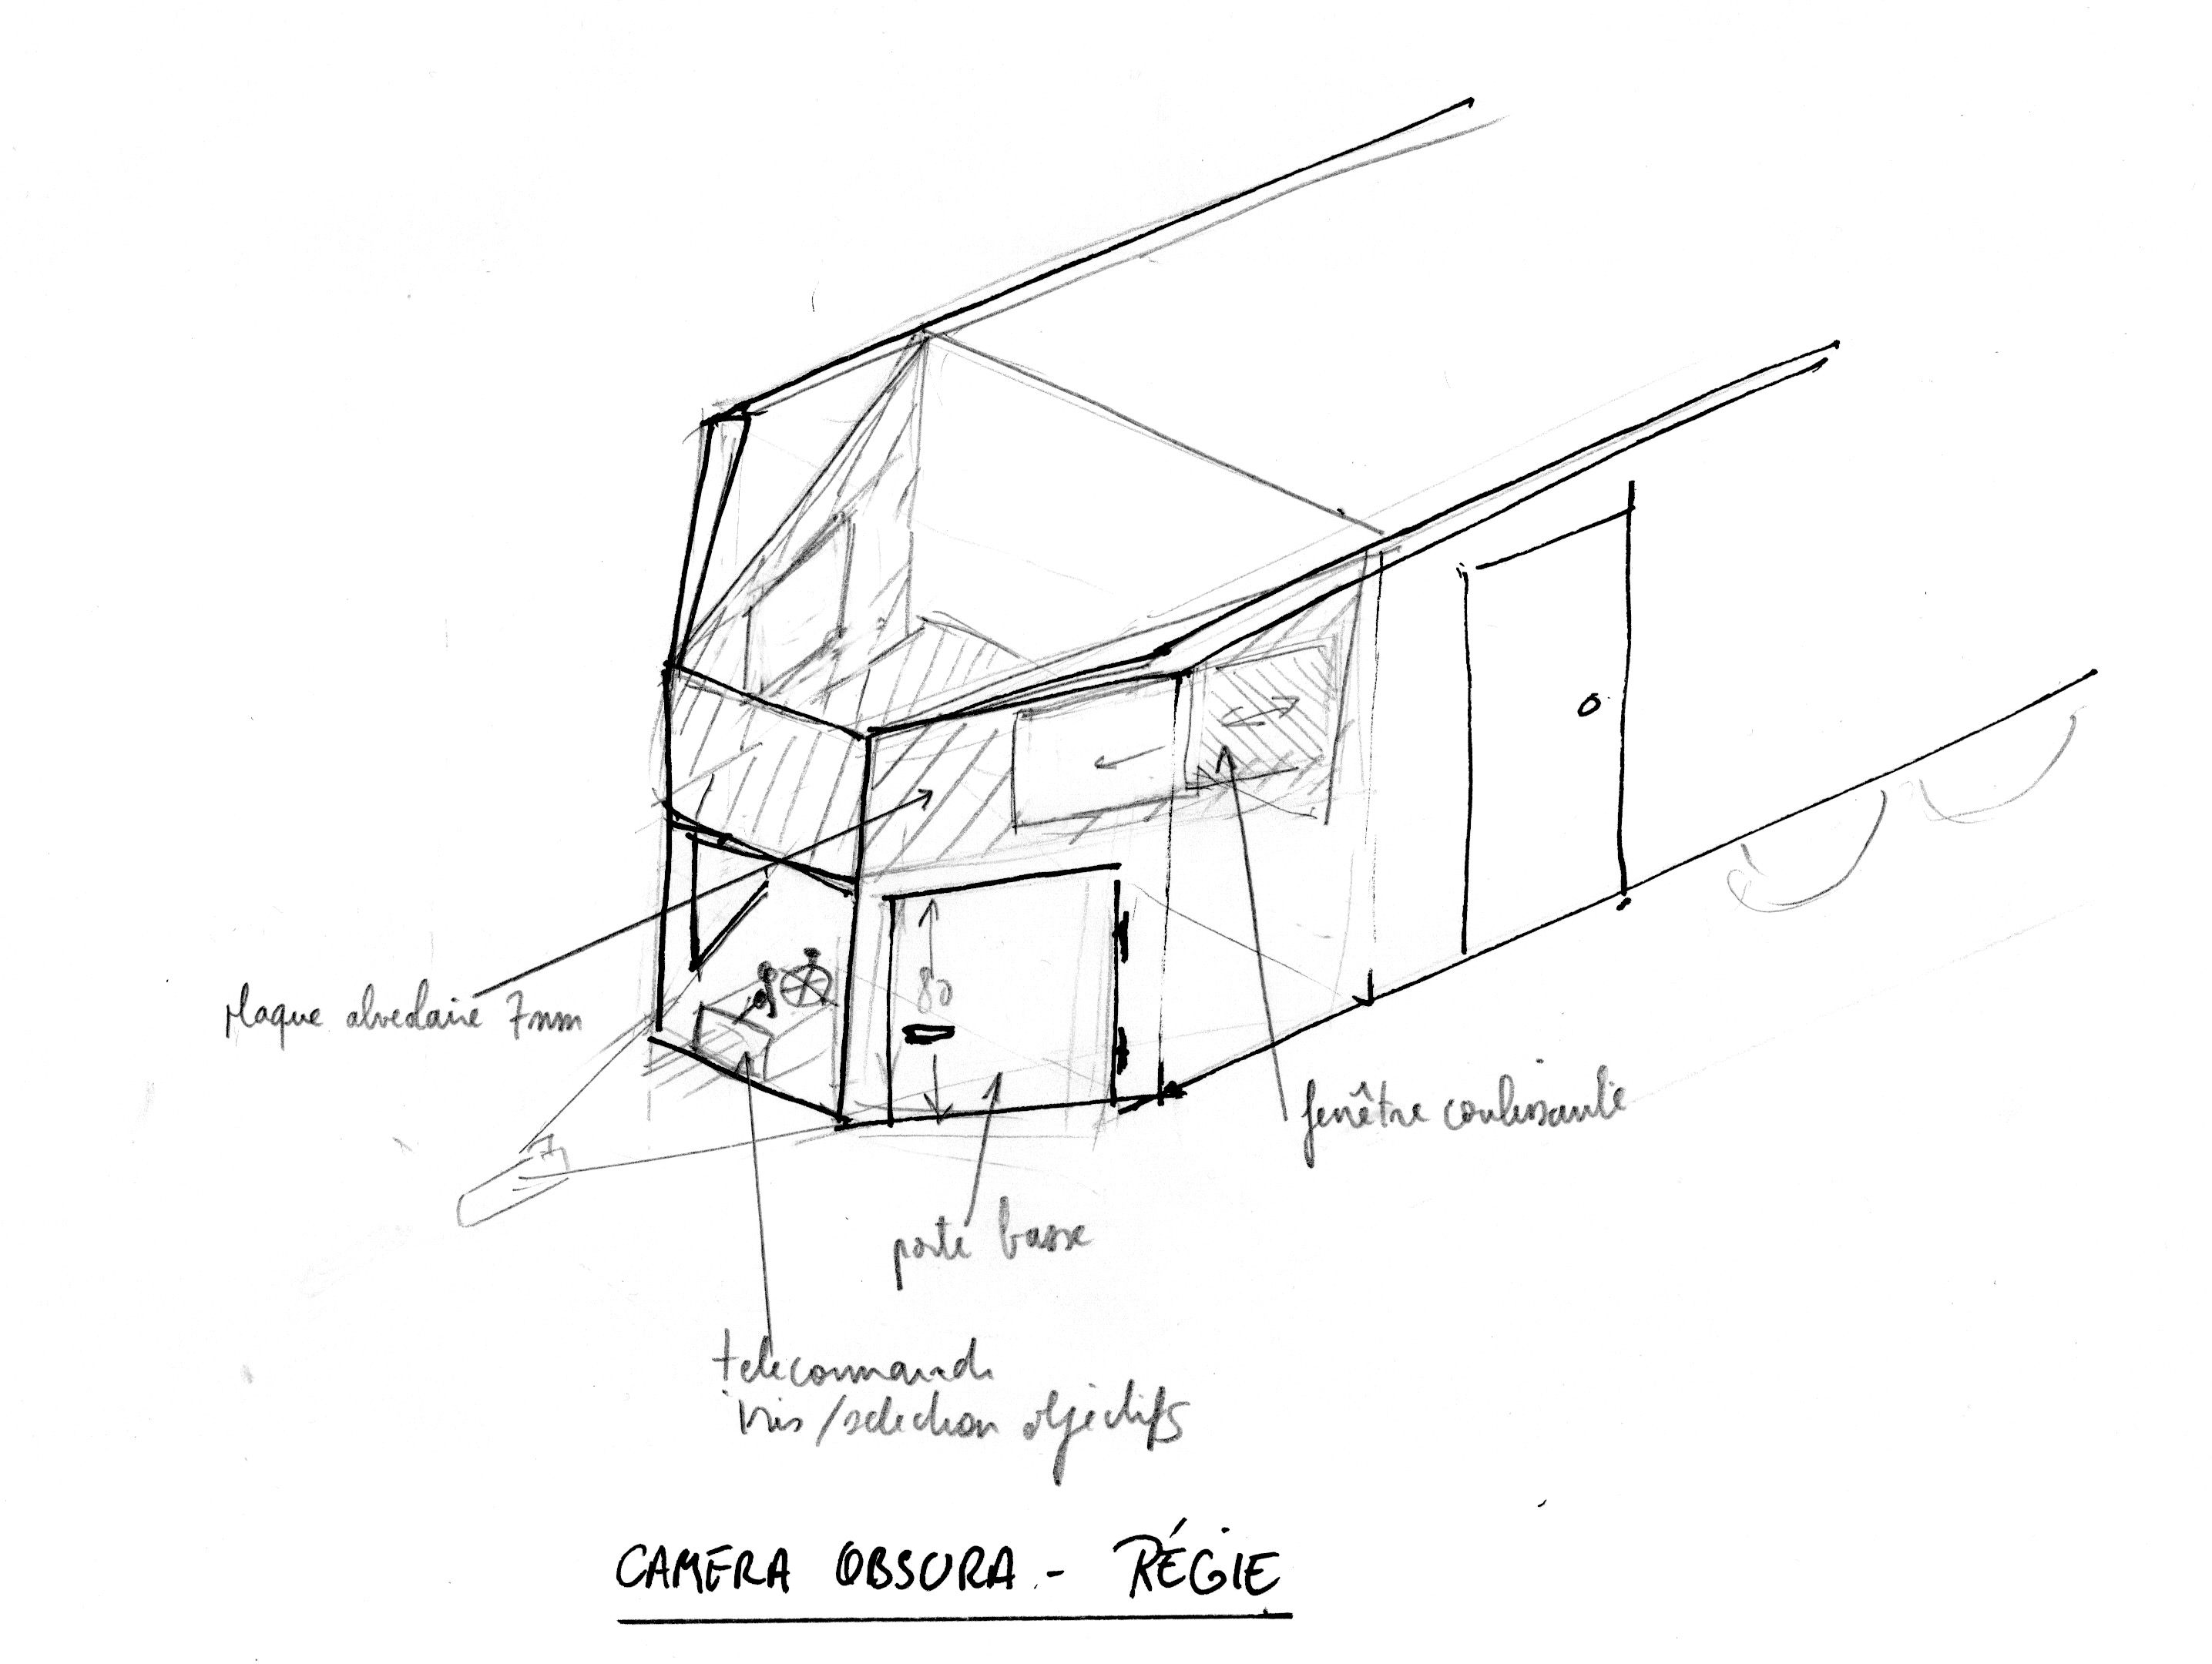 plaque alveolaire 7mm
80
fenêtre coulissante
porte basse
telecommande
iris/selection objectifs
CAMERA OBSURA - RÉGIE